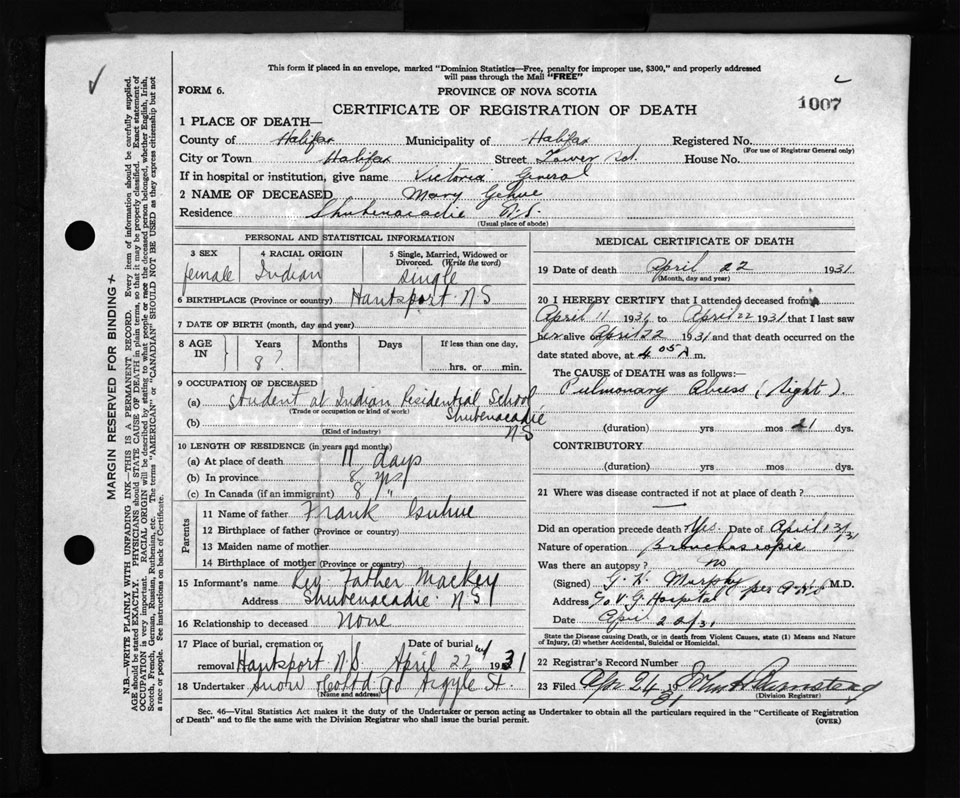 This form if placed in an envelope, marked "Dominion Statistics—Free, penalty for improper use, $300," and properly addressed
will pass through the Mail "FREE"
FORM 6.
PROVINCE OF NOVA SCOTIA
1007
CERTIFICATE OF REGISTRATION OF DEATH
1 PLACE OF DEATH—
County of Halifax Municipality of Halifax Registered No.
(For use of Registrar General only)
City or Town Halifax Street Tower Rd. House No.
If in hospital or institution, give name Victoria General
2 NAME OF DECEASED Mary Gehue
Residence Shubenacadie N.S.
(Usual place of abode)
MARGIN RESERVED FOR BINDING
N.B.—WRITE PLAINLY WITH UNFADING INK—THIS IS A PERMANENT RECORD. Every item of information should be carefully supplied.
AGE should be stated EXACTLY. PHYSICIANS should STATE CAUSE OF DEATH in plain terms, so that it may be properly classified. Exact statement of
OCCUPATION is very important. RACIAL ORIGIN will be described by stating to what people or race the deceased person belonged, whether English, Irish,
Scotch, French, German, Russian, Ruthenian, etc. The terms "AMERICAN" or "CANADIAN" SHOULD NOT BE USED as they express citizenship but not
a race or people. See instructions on back of Certificate.
PERSONAL AND STATISTICAL INFORMATION
3 SEX 4 RACIAL ORIGIN 5 Single, Married, Widowed or
Divorced. (Write the word)
female Indian Single
6 BIRTHPLACE (Province or country) Hantsport N S
7 DATE OF BIRTH (month, day and year)
8 AGE IN Years Months Days If less than one day,
8? hrs. or min.
9 OCCUPATION OF DECEASED
(a) Student at Indian Residential School
(Trade or occupation or kind of work)
Shubenacadie
(b) N S
(Kind of industry)
10 LENGTH OF RESIDENCE (in years and months)
(a) At place of death 11 days
(b) In province 8 yrs
(c) In Canada (if an immigrant) 8 "
Parents
11 Name of father Frank
12 Birthplace of father (Province or country)
13 Maiden name of mother
14 Birthplace of mother (Province or country)
15 Informant's name Rev Father Mackey
Address Shubenacadie N S
16 Relationship to deceased None
17 Place of burial, cremation or Date of burial
removal Hantsport N.S. April 22 1931
18 Undertaker Snow & Co Ltd 90 Argyle St.
(Name and address)
MEDICAL CERTIFICATE OF DEATH
19 Date of death April 22 1931
(Month, day and year)
20 I HEREBY CERTIFY that I attended deceased from
April 11 1931 to April 22 1931 that I last saw
her alive on April 22 1931 and that death occurred on
date stated above, at 4 05 A m.
The CAUSE of DEATH was as follows:—
Pulmonary Abcess (Right).
(duration) yrs mos 21 days
CONTRIBUTORY
(duration) yrs mos days
21 Where was disease contracted if not at place of death?
Did an operation precede death? Yes. Date of April 13/31
Nature of operation Bronchoscopic
Was there an autopsy? no
(Signed) G. H. Murphy per M.D.
Address c/o V G Hospital
Date April 22/31
State the Disease causing Death, or in death from Violent Causes, state (1) Means and Nature
of Injury, (2) whether Accidental, Suicidal or Homicidal.
22 Registrar's Record Number
23 Filed Apr 24 31
(Division Registrar)
Sec. 46—Vital Statistics Act makes it the duty of the Undertaker or person acting as Undertaker to obtain all the particulars required in the "Certificate of Registration
of Death" and to file the same with the Division Registrar who shall issue the burial permit.
(OVER)